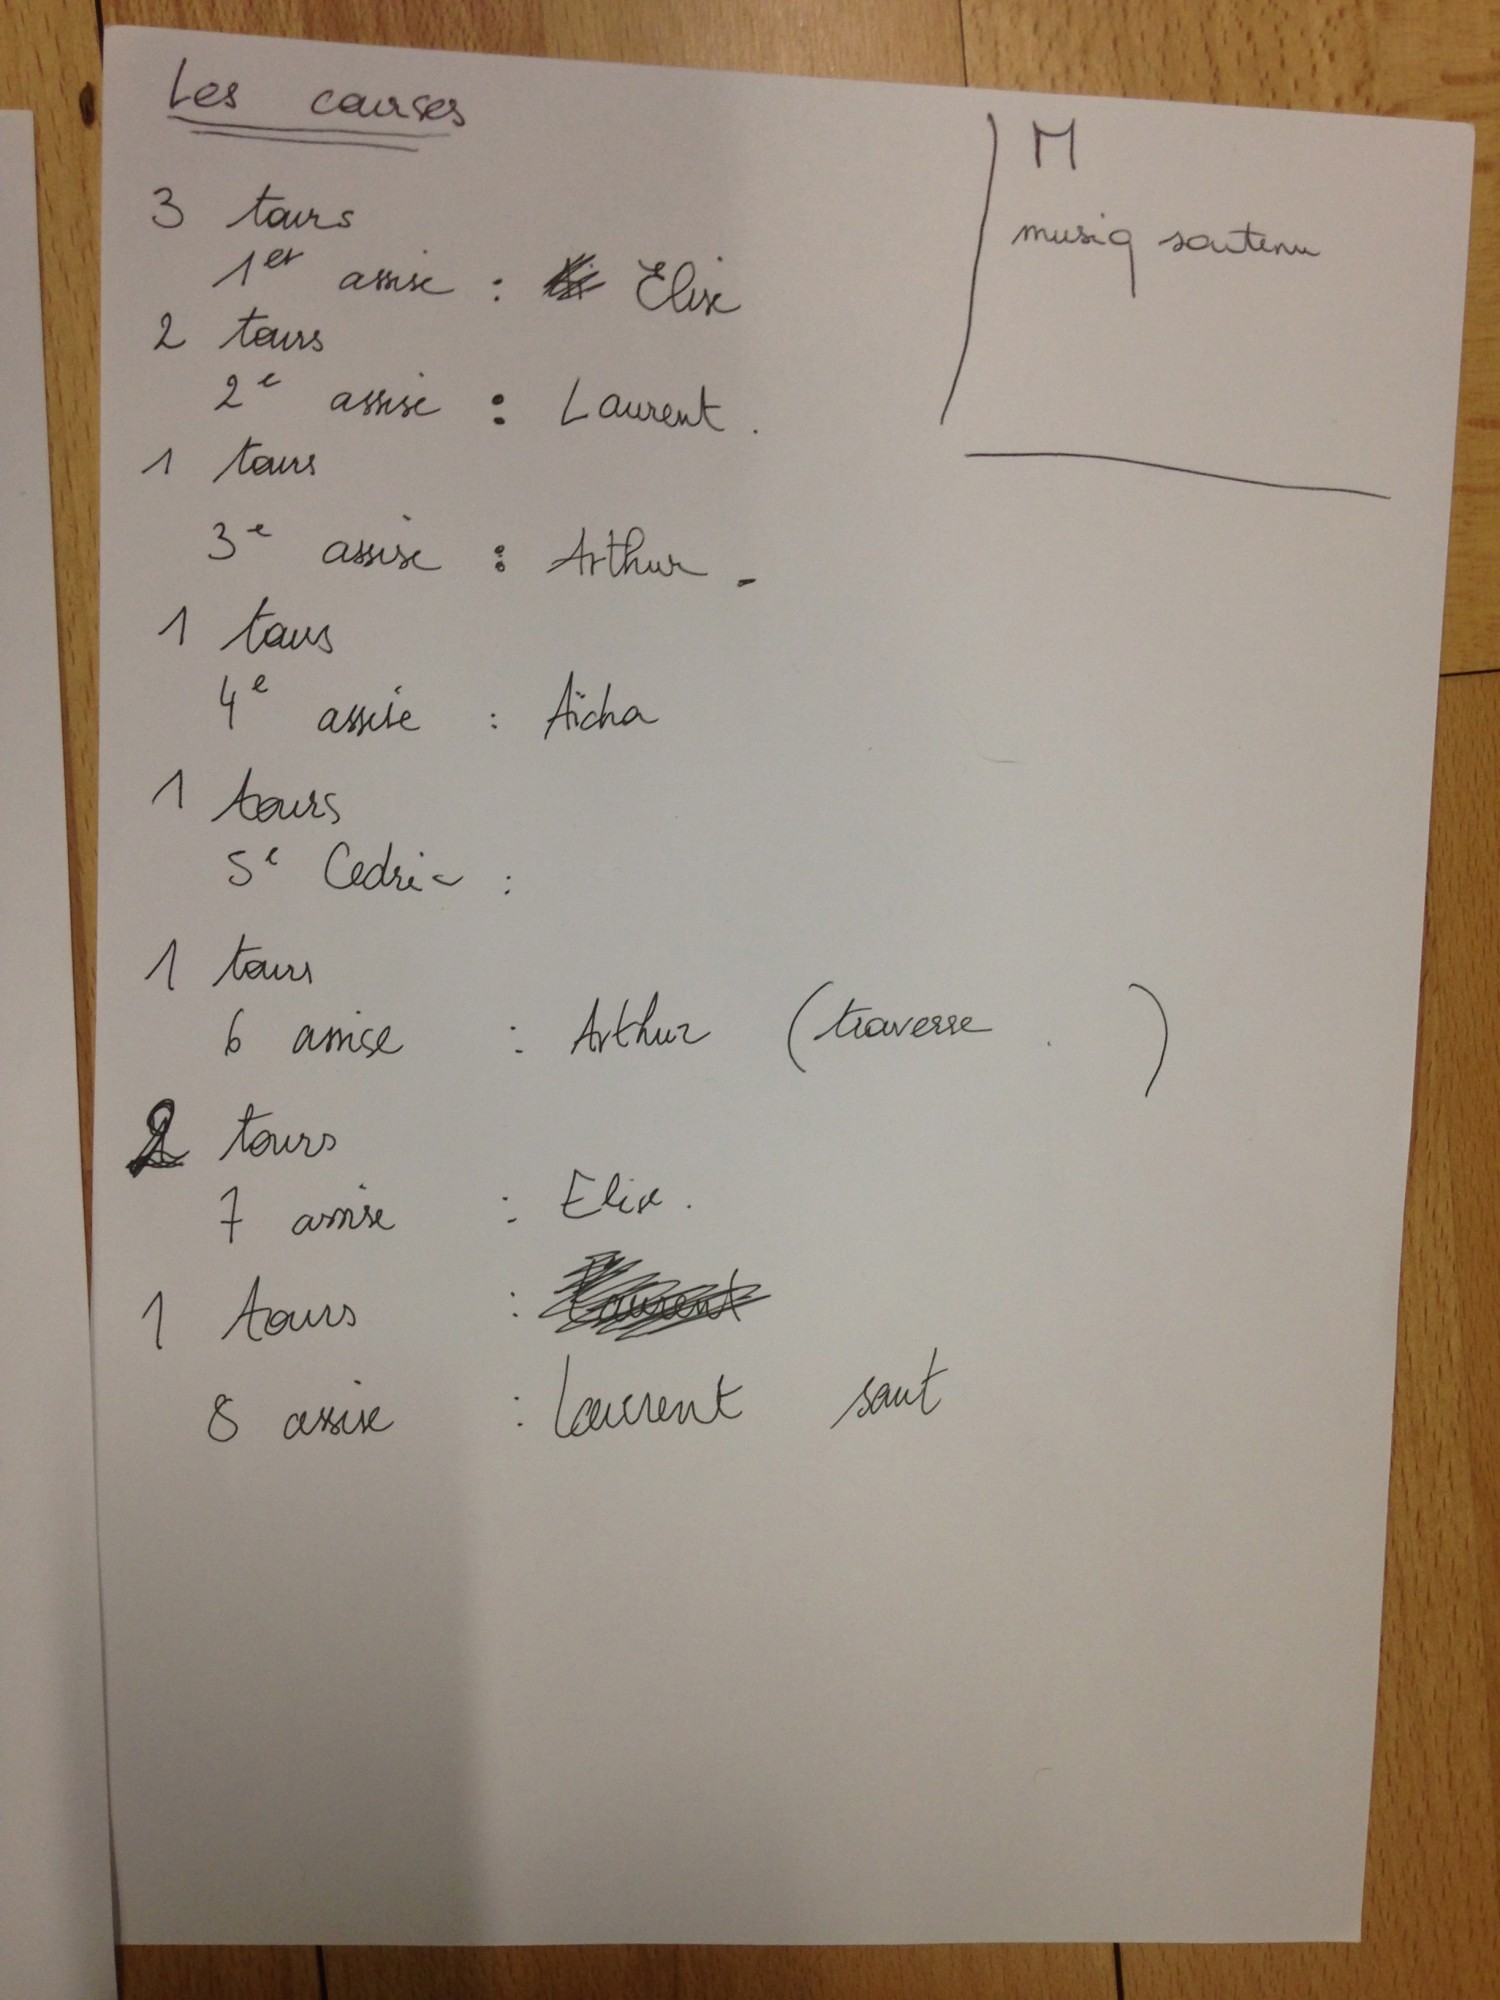 Les courses
M
musiq soutenu
3 tours
1er assise : Elise
2 tours
2e assise : Laurent.
1 tours
3e assise : Arthur -
1 tours
4e assise : Aïcha
1 tours
5e Cedric :
1 tours
6 assise : Arthur (traverse . )
2 tours
7 assise : Elise.
1 tours : Laurent
8 assise : Laurent saut